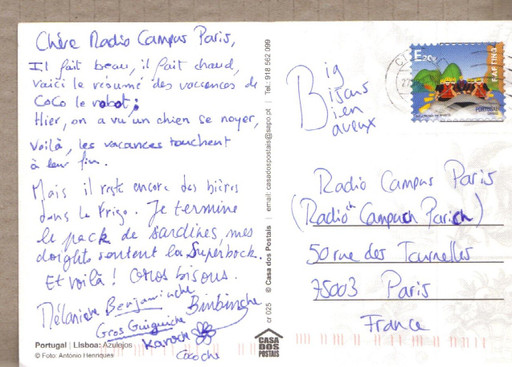 Chère Radio Campus Paris,
Il fait beau, il fait chaud,
voici le résumé des vacances de
CoCo le robot;
Hier, on a vu un chien se noyer,
Voilà, les vacances touchent
à leur fin.
Mais il reste encore des bières
dans le frigo. Je termine
le pack de sardines, mes
doights sentent la Superbock.
Et voilà! Gros bisous.
Mélaniche Benjaminche Binbinche
Gros Guiguiche
Karoche
Cocochs
Portugal | Lisboa: Azulejos
© Foto: António Henriques
cr 025 © Casa dos Postais | email: casadospostais@sapo.pt | Tel.: 918 562 099
CASA
DOS
POSTAIS
Big
Bisous
Bien
aveux
E20g
RAFTING
PORTUGAL
Radio Campus Paris
(Radioch Campuch Parich)
50 rue des Tournelles
75003 Paris
France